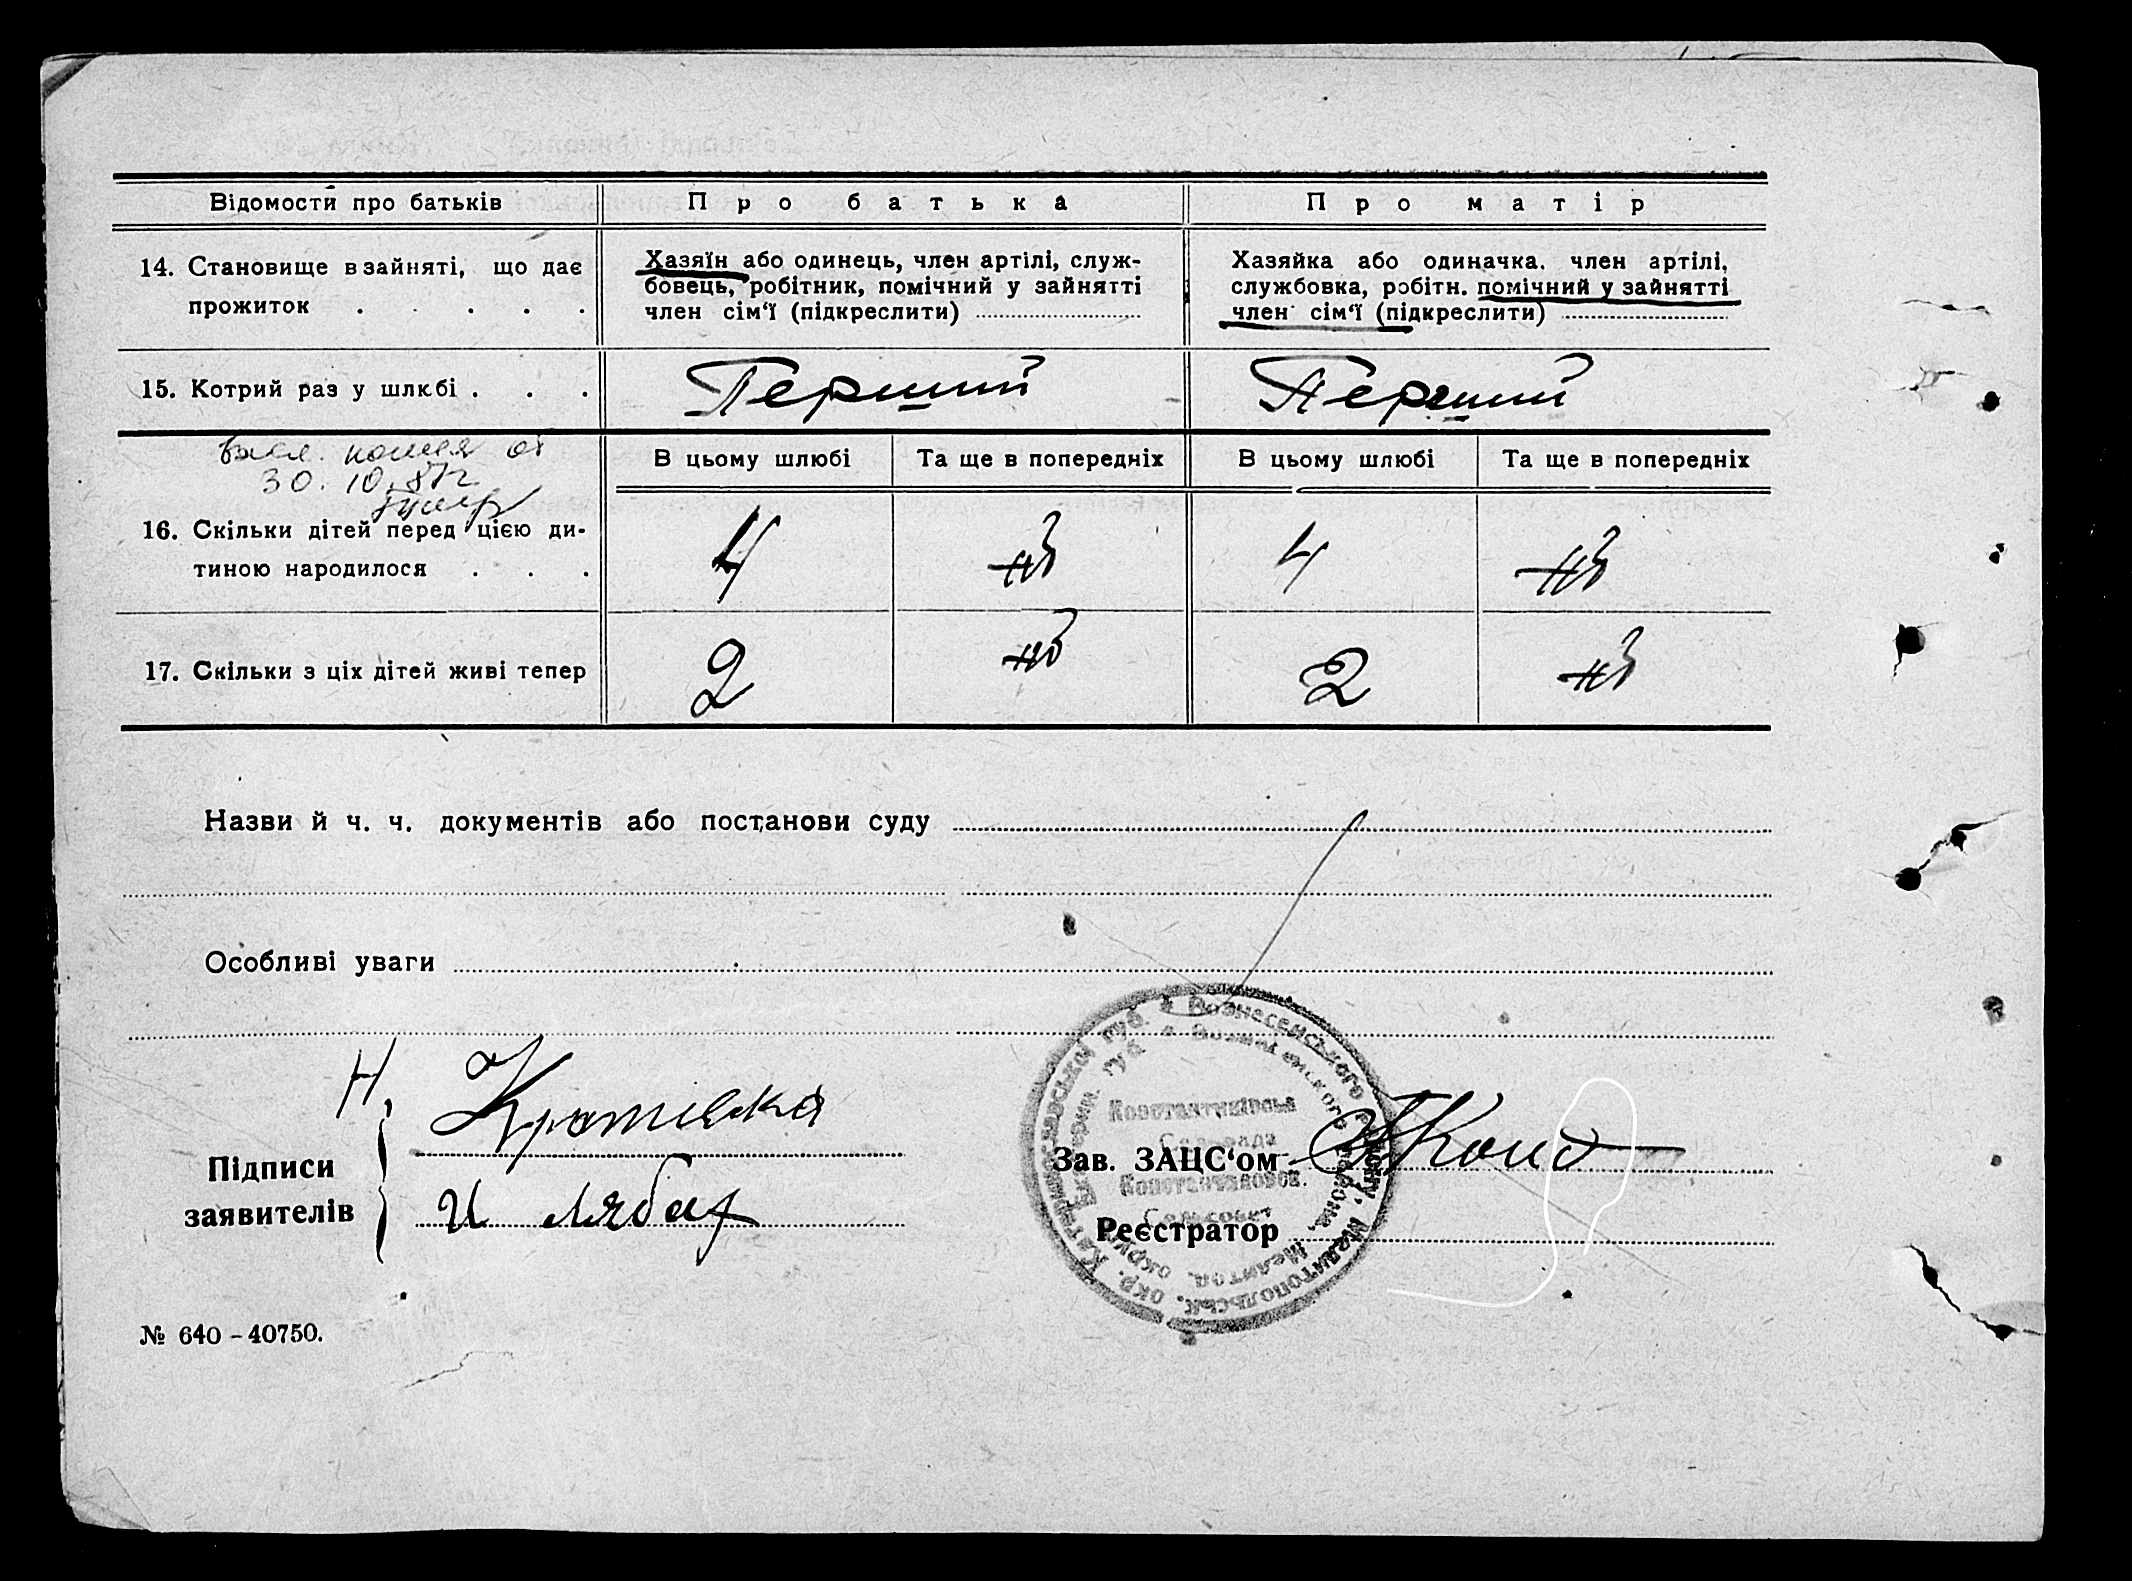 Відомости про батьків Про батька Про матір
14. Становище в зайняті, що дає
прожиток . . . . .
Хазяїн або одинець, член артілі, служ-
бовець, робітник, помічний у зайнятті
член сім'ї (підкреслити)
Хазяйка або одиначка, член артілі,
службовка, робітн. помічний у зайнятті
член сім'ї (підкреслити)
15. Котрий раз у шлюбі . . . Перший Перший
30.10.87г
В цьому шлюбі Та ще в попередніх В цьому шлюбі Та ще в попередніх
16. Скільки дітей перед цією ди-
тиною народилося . . .
4 ні 4 ні
17. Скільки з ціх дітей живі тепер 2 ні 2 ні
Назви й ч. ч. документів або постанови суду
Особливі уваги
Н.
Підписи
заявителів
И
Зав. ЗАЦС'ом
Реєстратор
Катеринославської губ. Вознесенського району, Мелитопольськ. окр.
№ 640 - 40750.